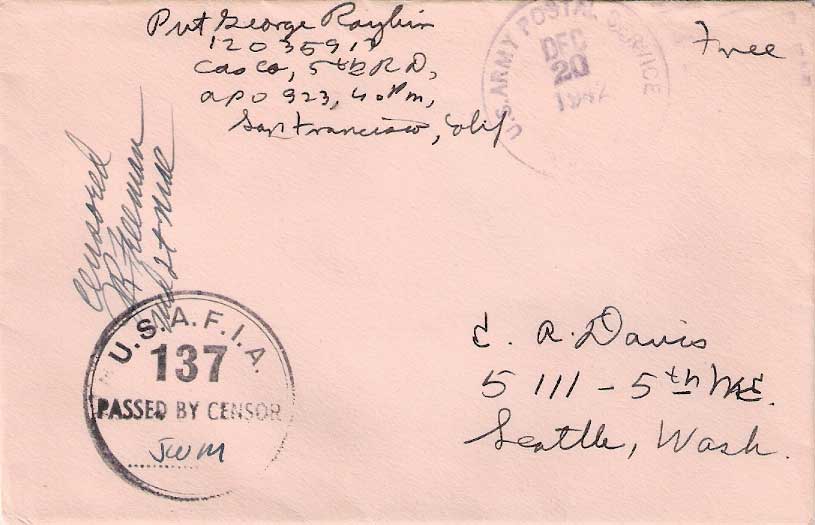 Pvt George Raybin
12035917
Cas Co, 5th R D,
APO 923, % Pm,
San Francisco, Calif
U.S. ARMY POSTAL SERVICE
DEC
20
1942
Free
Censored
Freeman
1st
U.S.A.F.I.A.
137
PASSED BY CENSOR
JWM
E. A. Davis
5111 - 5th N.E.
Seattle, Wash.